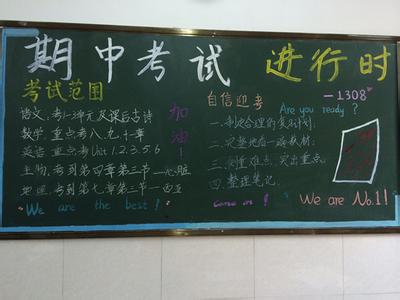 期中考试 进行时
考试范围
语文:考1-3单元及课后古诗
数学:重点考八、九、十章
英语:重点考Unit 1.2.3.5.6
生物:考到第四章第三节——心脏
地理:考到第七章第三节——西亚
"We are the best!"
加油!
自信迎考
-1308
Are you ready?
一、制定合理的复习计划;
二、完整地看一遍教材;
三、侧重难点,突出重点;
四、整理笔记.
Come on!
We are No.1!